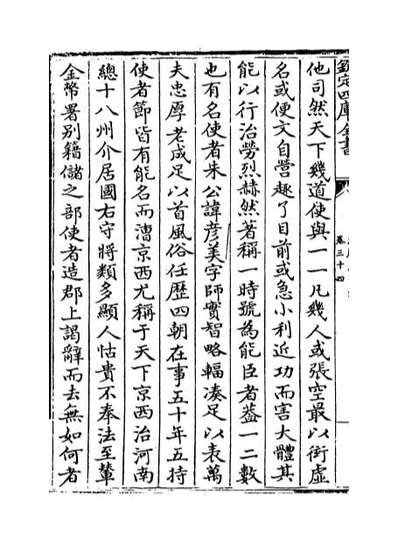 欽定四庫全書
卷三十四
他司然天下幾道使與一一凡幾人或張空最以衒虛
名或便文自營趣了目前或急小利近功而害大體其
能以行治勞烈赫然著稱一時號為能臣者蓋一二數
也有名使者朱公諱彦美字師實智略輻凑足以表萬
夫忠厚老成足以首風俗任歴四朝在事五十年五持
使者節皆有能名而漕京西尤稱于天下京西治河南
總十八州介居國右守將類多顯人怙貴不奉法至輦
金幣署别籍儲之部使者造郡上謁辭而去無如何者